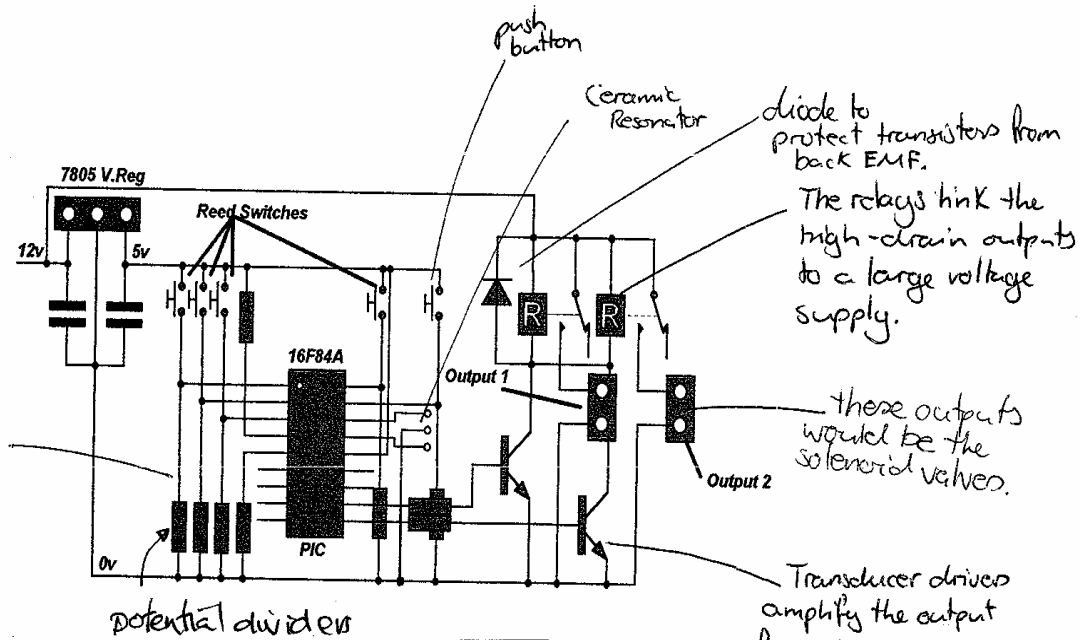 push
button
Ceramic
Resonator
diode to
protect transistors from
back EMF.
The relays link the
high-drain outputs
to a large voltage
supply.
7805 V.Reg
Reed Switches
12v
5v
16F84A
R
R
Output 1
these outputs
would be the
solenoid valves.
Output 2
PIC
0v
potential dividers
Transducer drivers
amplify the output